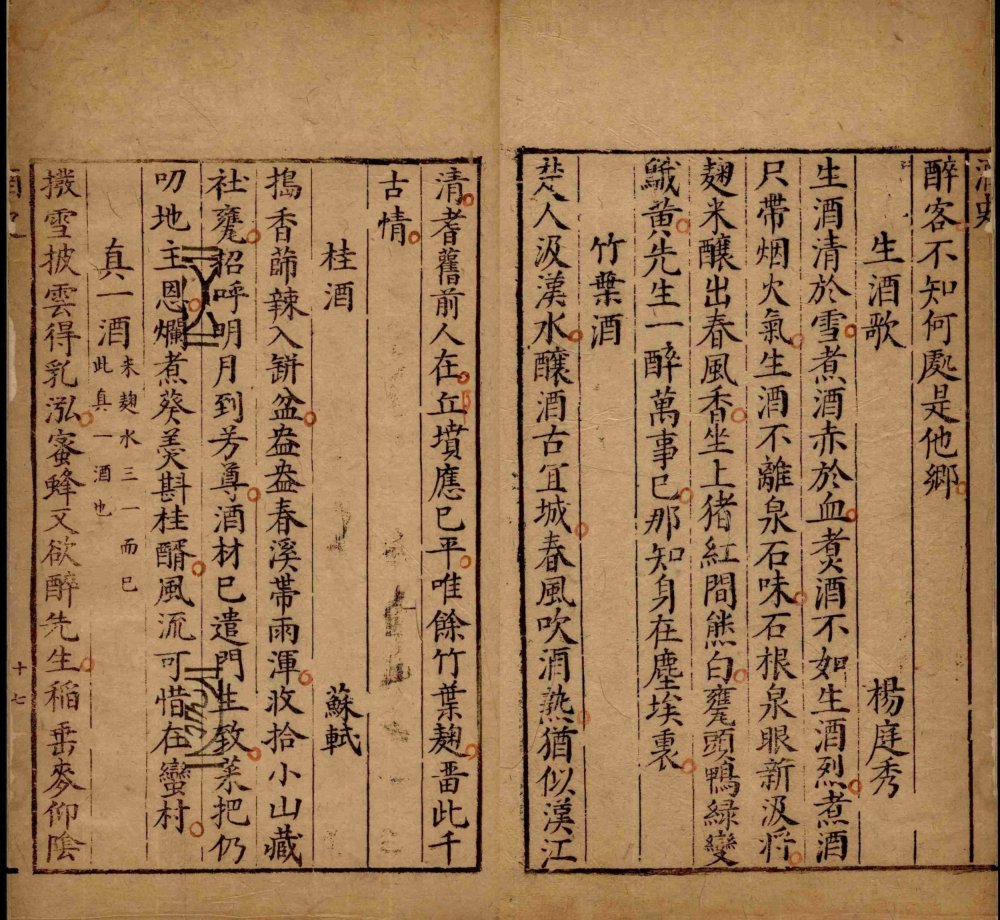 酒史
醉客不知何處是他鄉
生酒歌 楊庭秀
生酒清於雪煮酒赤於血煑酒不如生酒烈煮酒
只帶烟火氣生酒不離泉石味石根泉眼新汲將
麹米釀出春風香坐上猪紅間熊白甕頭鴨綠變
鵝黃先生一醉萬事已那知身在塵埃裏
竹葉酒
楚人汲漢水釀酒古冝城春風吹酒熟猶似漢江
清耆舊前人在丘墳應已平唯餘竹葉麹畱此千
古情
桂酒 蘇軾
搗香篩辣入缾盆盎盎春溪帶雨渾收拾小山藏
社甕招呼明月到芳尊酒材已遣門生致菜把仍
叨地主恩爛煮葵羹斟桂醑風流可惜在蠻村
真一酒 米麹水三一而已
此真一酒也
撥雪披雲得乳泓蜜蜂又欲醉先生稻垂麥仰陰
酒史
十七